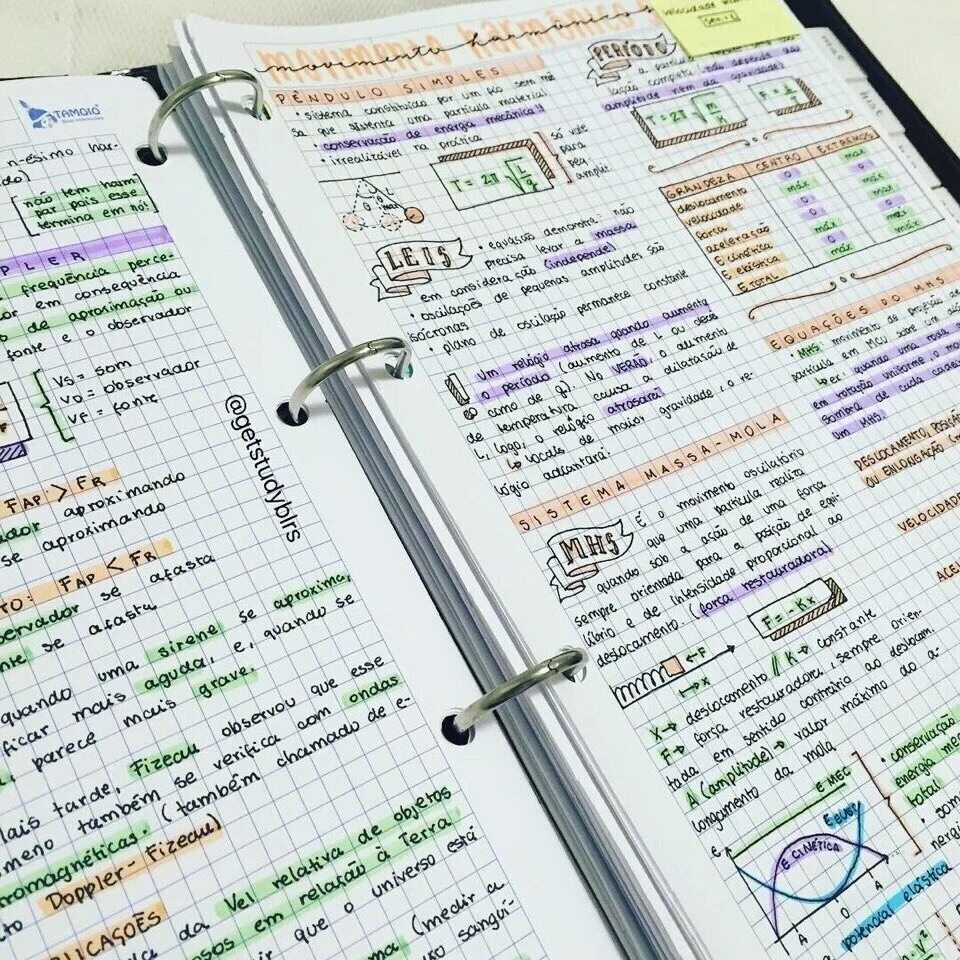 TAMOIO
n-ésimo har-
não tem harm
par pois esse
termina em nó!
PLER
frequência perce-
em consequência
de aproximação ou
fonte e o observador
Vs = som
Vo = observador
VF = fonte
FAP > FR
aproximando
se aproximando
FAP < FR
se afasta
se afasta
quando uma sirene se aproxima,
ficar mais aguda, e, quando se
parece mais grave.
tarde, Fizeau observou que esse
também se verifica com ondas
(também chamado de e-
Doppler-Fizeau)
da Vel relativa de objetos
em relação à Terra
que o universo está
(medir a
sanguí-
@getstudyblrs
movimento harmônico
PÊNDULO SIMPLES
• sistema constituído por um fio sem
sa que sustenta uma partícula material
• conservação de energia mecânica!!
• irrealizável na prática
T = 2π √L/g
só vale
para
peq.
amplit.
LEIS
• equação demonstra: não
precisa levar a massa
em consideração (independe)
• oscilações de pequenas amplitudes são
isócronas
• plano de oscilação permanece constante
Um relógio atrasa quando aumenta
o período (aumento de L ou
de g). No VERÃO, o aumento
de temperatura causa a dilatação de
L, logo, o relógio atrasará!
↳ locais de maior gravidade, o re-
lógio adiantará!
SISTEMA MASSA-MOLA
MHS
É o movimento oscilatório
que uma partícula realiza
quando sob a ação de uma força
sempre orientada para a posição de equi-
líbrio e de intensidade proporcional ao
deslocamento. (força restauradora)
F = -Kx
←F
→x
x → deslocamento // K → constante
F → força restauradora (sempre orien-
tada em sentido contrário ao deslocam.
A (amplitude) → valor máximo do a-
longamento da mola
E
E MEC
E ELÁST
E CINÉTICA
-A
O
A
• conservação
energia me
total!
potencial elástica
velocidade
PERÍODO
lação completa (não depende da
amplitude nem da gravidade!
T = 2π √m/K
GRANDEZA CENTRO EXTREMOS
deslocamento 0 máx
velocidade máx 0
força 0 máx
aceleração 0 máx
E cinética máx 0
E elástica 0 máx
E TOTAL máx máx
EQUAÇÕES DO MHS
• MHS: movimento de projeção de
partícula em MCU sobre um
↳ ex: quando uma roda
em rotação uniforme o
sombra de cada
um MHS.
DESLOCAMENTO, POSIÇÃO
OU ELONGAÇÃO
VELOCIDADE